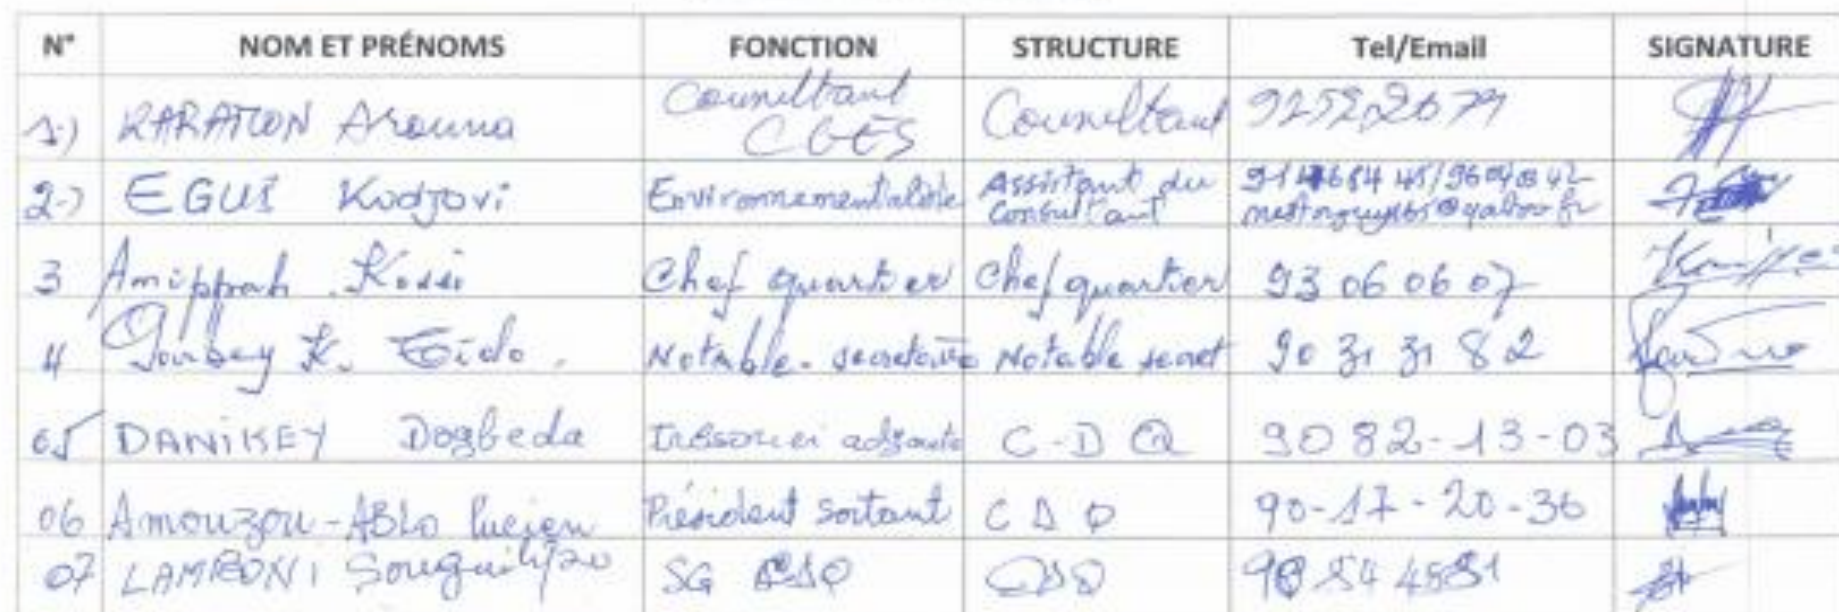 N° NOM ET PRÉNOMS FONCTION STRUCTURE Tel/Email SIGNATURE
1-) KARATOON Arouna Consultant CGES Consultant
2-) EGUI Kodjovi Environnementaliste Assistant du Consultant
3 Amippah Kossi Chef quartier Chef quartier 93 06 06 07
4 K. Notable - secrétaire Notable secret 90 31 31 82
05 DANIKEY Dogbeda Trésorier adjointe C-DQ 90 82-13-03
06 Amouzou-ABLO Lucien Président sortant CDQ 90-17-20-36
07 LAMBONI SG CDQ CDQ